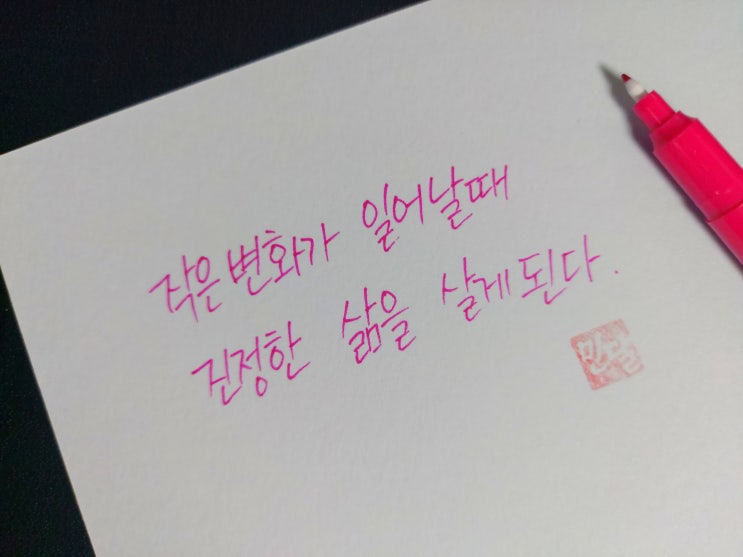 작은 변화가 일어날때
진정한 삶을 살게 된다.